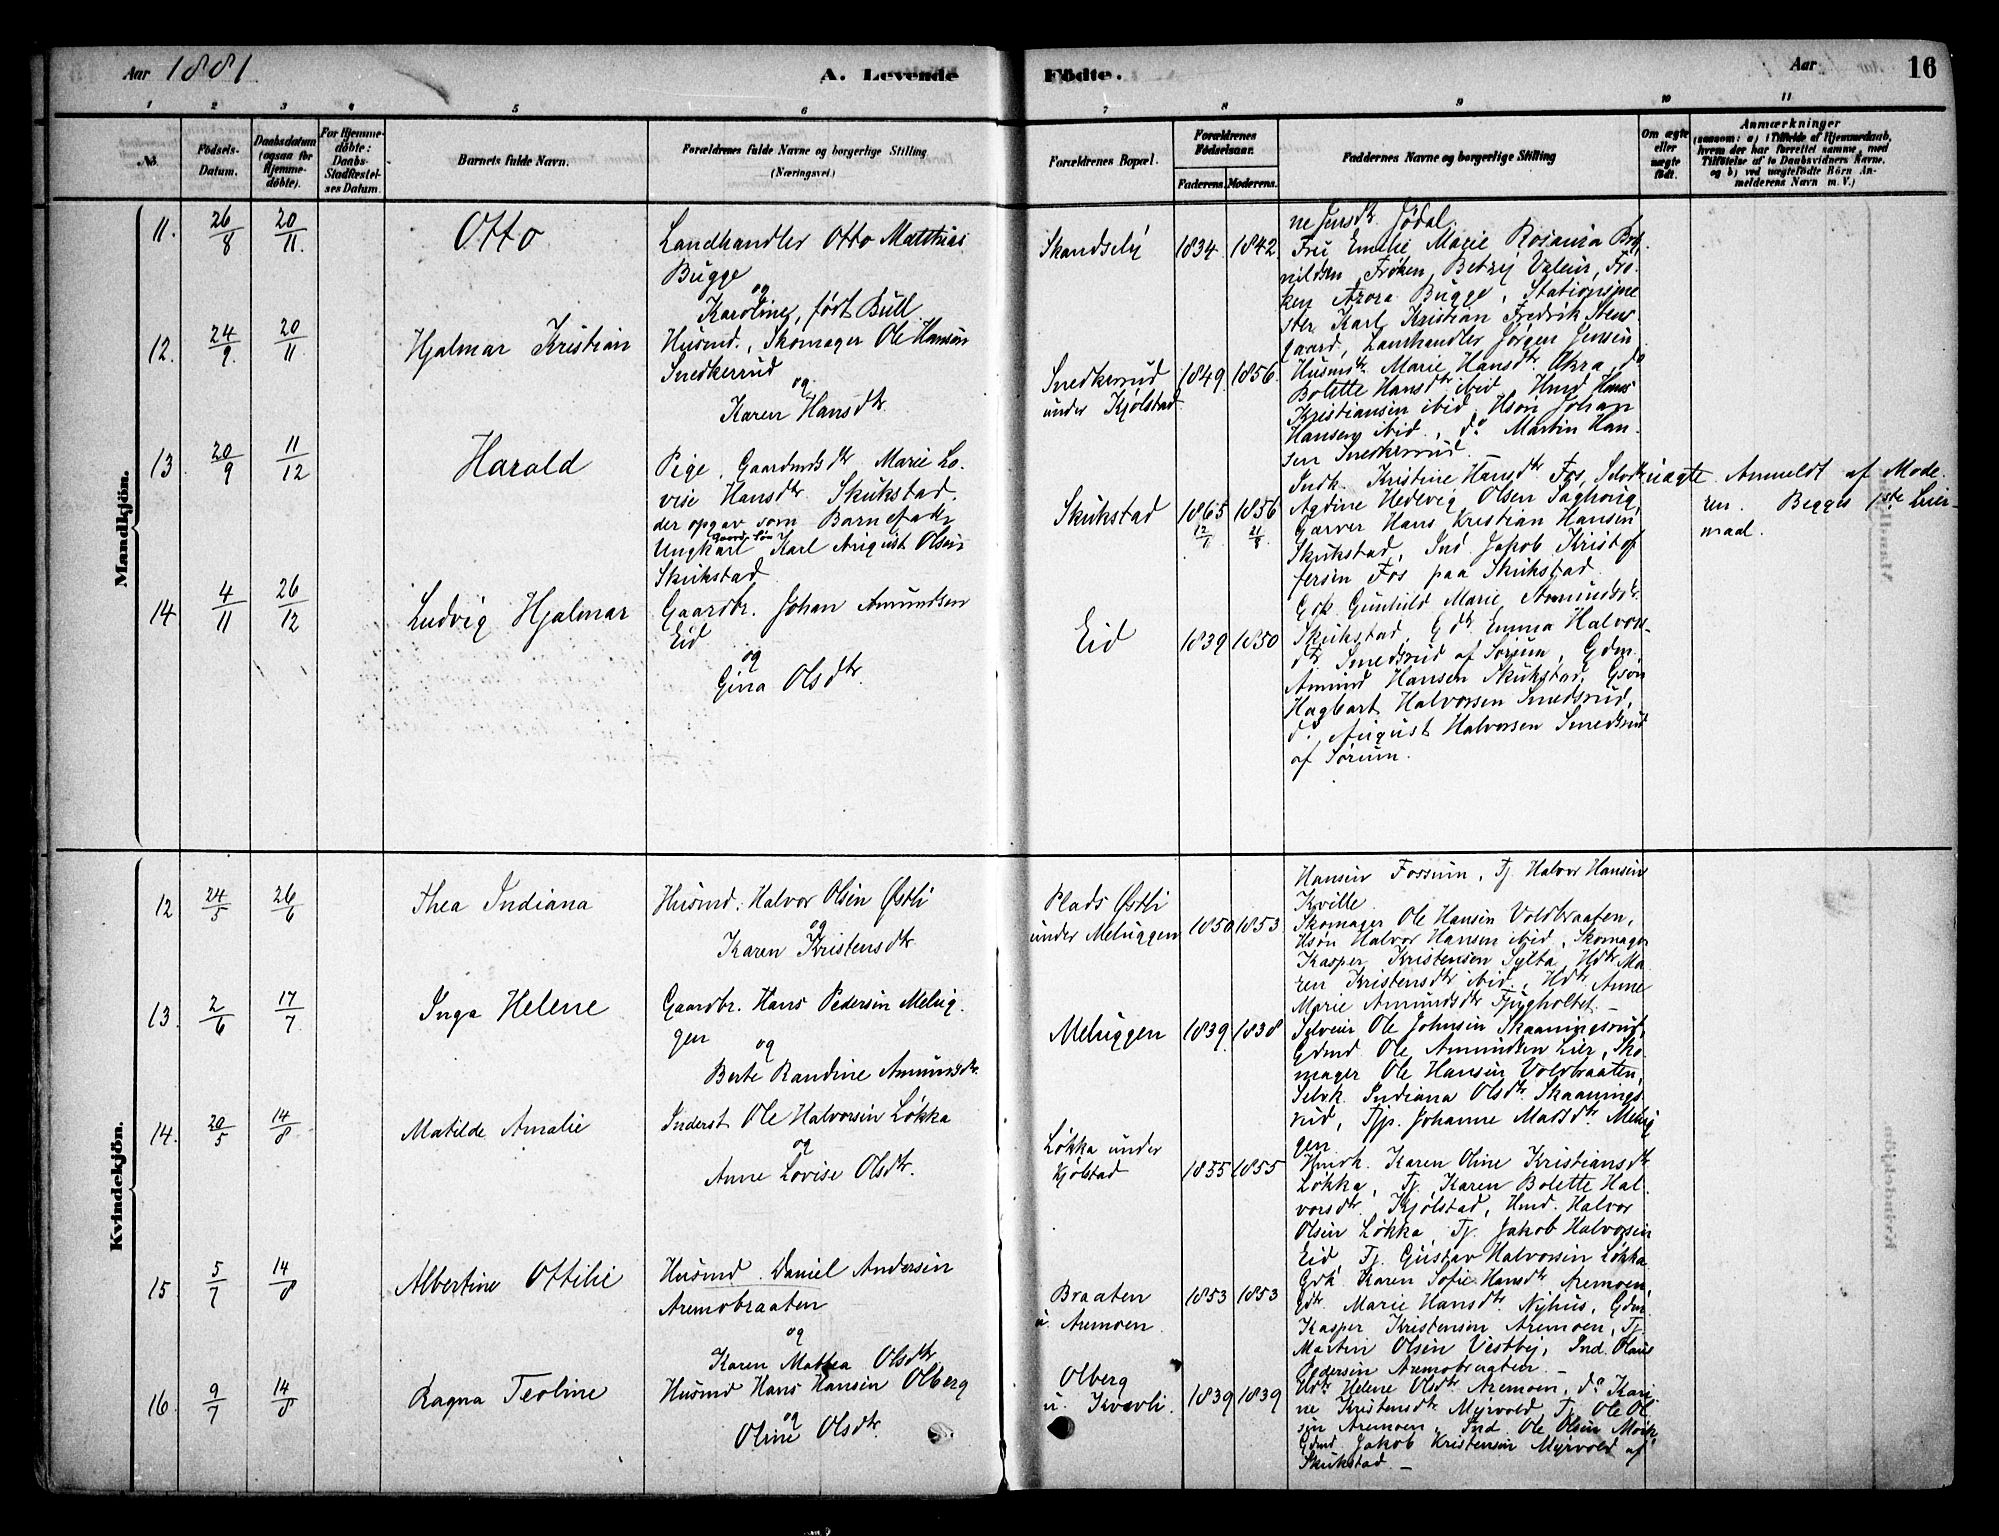 Aar 1881
A. Levende
Födte.
Aar
16
1 2 3 4 5 6 7 8 9 10 11
No.
Födsels-
Datum.
Daabsdatum
(ogsaa for
Hjemme-
döbte).
For Hjemme-
döbte:
Daabs-
Stadfæstel-
ses Datum.
Barnets fulde Navn.
Forældrenes fulde Navne og borgerlige Stilling
(Næringsvei.)
Forældrenes Bopæl.
Forældrenes
Födselsaar.
Faderens. Moderens.
Faddernes Navne og borgerlige Stilling
Om ægte
eller
uægte
födt.
Anmærkninger
(saasom: a) i Tilfælde af Hjemmedaab,
hvem der har forrettet samme, med
Tilföielse af to Daabsvidners Navne,
og b) ved uægtefödte Börn An-
melderens Navn m. V.)
Mandkjön.
11. 26/8 20/11.
Otto
Landhandler Otto Matthias
Bugge
og
Karoline, født Bull
Skandsely
1834 1842
ne Jensdtr. Jødal.
Fru Emelie Marie Rosania
Frøken Betzy Valeur, Frø-
ken Azora Bugge, Stationsme
ster Karl Kristian Fredrik Sten
gaard, Landhandler Jørgen Jensen
12. 24/9. 20/11.
Hjalmar Kristian
Husmd., Skomager Ole Hansen
Snedkerrud
og
Karen Hansdtr.
Snedkerrud
under Kjølstad
1849 1856.
Husmdtr. Marie Hansdtr. Ukra, do
Bolette Hansdtr ibid, Hmd Hans
Kristiansen ibid, Hsøn Johan
Hansen ibid, do Martin Han-
sen Snedkerrud
13 20/9 11/12
Harald
Pige, Gaardmdsdtr Marie Lo-
vise Hansdtr Skukstad.
der opgav som Barnefader
Ungkarl Gaards Søn Karl August Olsen
Skukstad
Skukstad
1865 12/1
1856 21/8
Indk. Kristine Hansdtr Fos, Selvdtr
Agdine Hedevig Olsen
Garver Hans Kristian Hansen
Skukstad, Ind. Jakob Kristof
fersen Fos paa Skukstad.
uægte
Anmeldt af Mode-
ren. Begges 1ste Leier-
maal.
14 4/11 26/12
Ludvig Hjalmar
Gaardbr. Johan Amundsen
Eid
og
Gina Olsdtr.
Eid
1839 1850
Gdk. Gunhild Marie Amundsdtr.
Skukstad, Gdtr. Emma Halvors-
dtr. Smedsrud af Sørum, Gdm.
Amund Hansen Skukstad, Gsøn
Hagbart Halvorsen Smedsrud,
do. August Halvorsen Smedsrud
af Sørum.
Kvindekjön.
12 24/5 26/6
Thea Indiana
Husmd. Halvor Olsen Østli
og
Karen Kristensdtr
Plads Østli
under Meluggen
1850 1853
Hansen Fossum, Tj. Halvor Hansen
Kville.
Skomager Ole Hansen Voldbraaten,
Hsøn Halvor Hansen ibid, Skomager
Kasper Kristensen Sylta, Hdtr Ma
ren Kristensdtr ibid., Hdtr. Anne
Marie Amundsdtr
13. 2/6 17/7
Inga Helene
Gaardbr. Hans Pedersen Melug-
gen
og
Berte Randine Amundsdtr.
Meluggen
1839 1838
Selveier Ole Johnsen Skaaningsrud,
Gdmd Ole Amundsen Lier, Sko
mager Ole Hansen Voldbraaten,
Selvk. Indiana Olsdtr Skaanings
rud, Tjp. Johanne Madsdtr. Melug
gen
14. 20/5 14/8
Matilde Amalie
Inderst Ole Halvorsen Løkka
og
Anne Lovise Olsdtr.
Løkka under
Kjølstad
1855 1855
Hmdk. Karen Oline Kristiansdtr
Løkka, Tj. Karen Bolette Hal-
vorsdtr. Kjølstad, Hmd. Halvor
Olsen Løkka, Tj. Jakob Halvorsen
Eid Tj. Gustav Halvorsen Løkka
15 5/7 14/8
Albertine Ottilie
Husmd. Daniel Andersen
Aremobraaten
og
Karen Mathea Olsdtr
Braaten
u. Aremoen
1853 1853
Gdk Karen Sofie Hansdtr Aremoen,
Gdtr. Marie Hansdtr. Nyhus, Gdm.
Kasper Kristensen Aremoen, Tj.
Martin Olsen Vestby, Ind. Olaus
Pedersen Aremobraaten. —
16. 9/7 14/8
Ragna Teoline
Husmd Hans Hansen Olberg
og
Oline Olsdtr.
Olberg
u. Kvevli
1839 1839
Hdtr. Helene Olsdtr. Aremoen, do Kari-
ne Kristensdtr. Myrvold Tj. Ole Ol
sen Aremoen, Ind. Ole Olsen
Gdmd. Jakob Kristensen Myrvold af
Skukstad. —